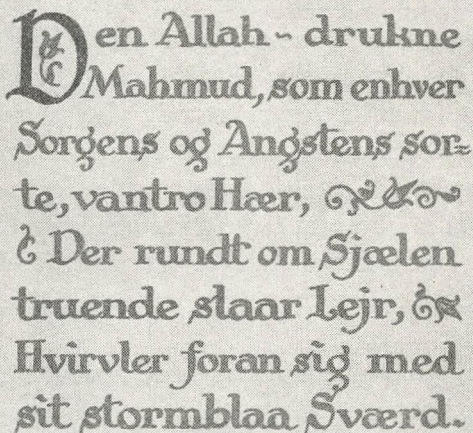 Den Allah-drukne
Mahmud, som enhver
Sorgens og Angstens sor-
te, vantro Hær,
Der rundt om Sjælen
truende slaar Lejr,
Hvirvler foran sig med
sit stormblaa Sværd.